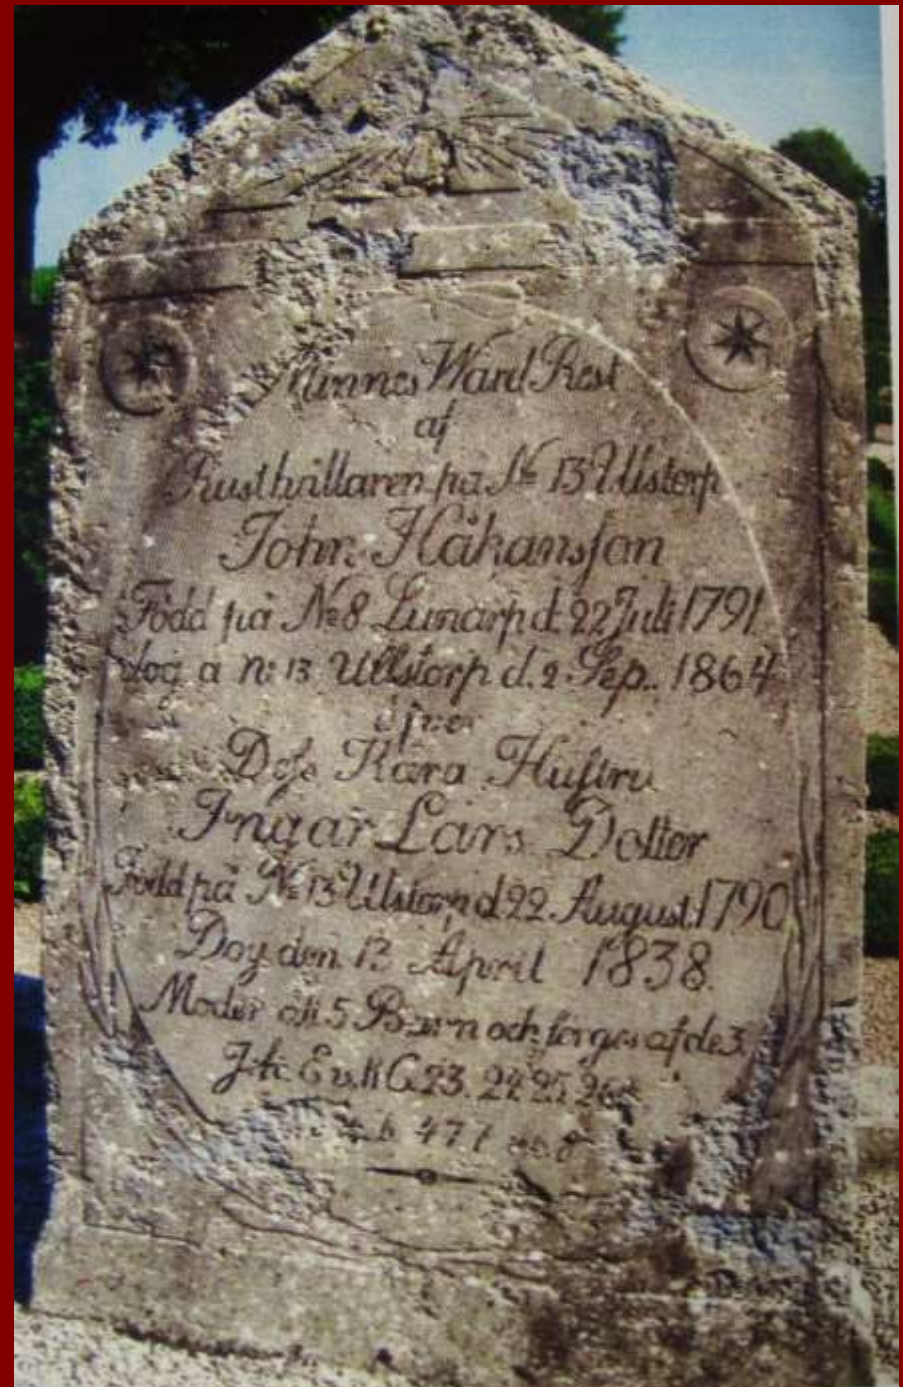 Minnes Ward Rest
af
Rusthållaren på No 13 Ulstorp
John Håkansson
Född på No 8 Lunarp d. 22 Juli 1791
dog a n: 13 Ullstorp d. 2 Sep.. 1864
öfver
Dess Kära Hustru
Ingar Lars Dotter
Född på No 13 Ulstorp d 22 August 1790
Dog den 13 April 1838
Moder till 5 Barn och sörges af de 3
23. 24 25 26
471